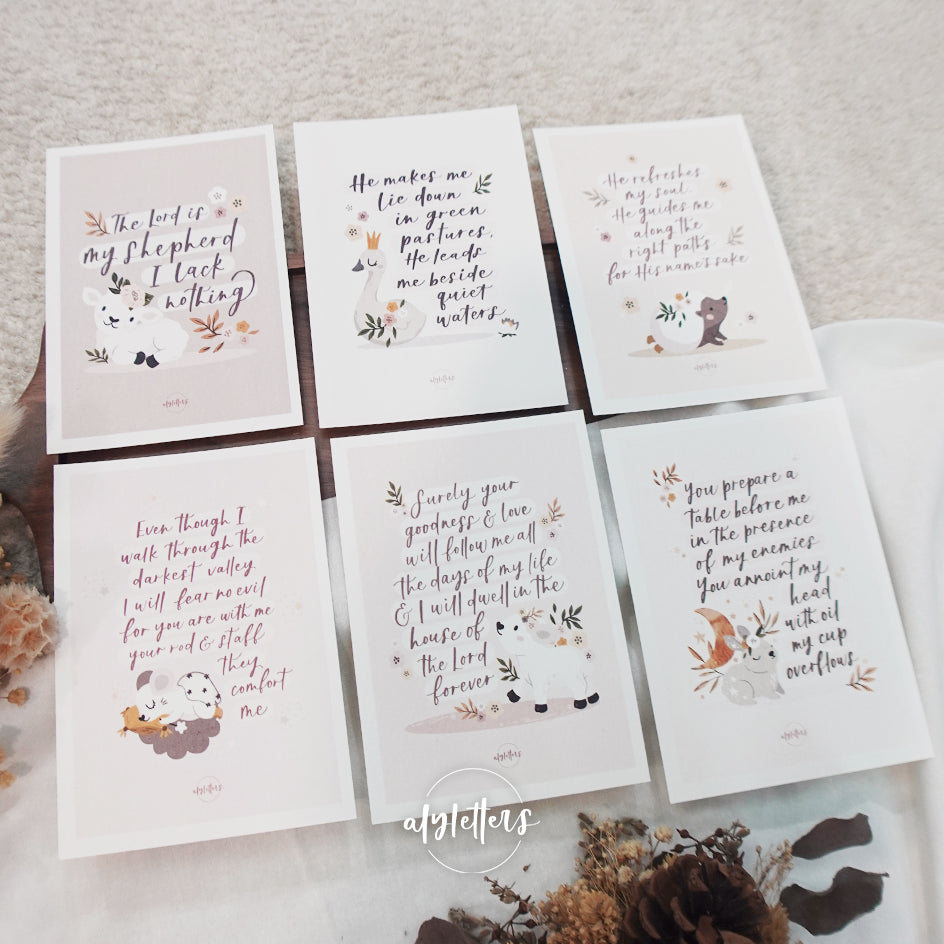 The Lord is
my shepherd
I lack
nothing
alyletters
He makes me
lie down
in green
pastures,
He leads
me beside
quiet
waters
alyletters
He refreshes
my soul.
He guides me
along the
right paths
for His name's sake
alyletters
Even though I
walk through the
darkest valley
I will fear no evil
for you are with me
your rod & staff
they
comfort
me
alyletters
Surely your
goodness & love
will follow me all
the days of my life
& I will dwell in the
house of
the Lord
forever
alyletters
You prepare a
table before me
in the presence
of my enemies
You annoint my
head
with oil
my cup
overflows
alyletters
alyletters